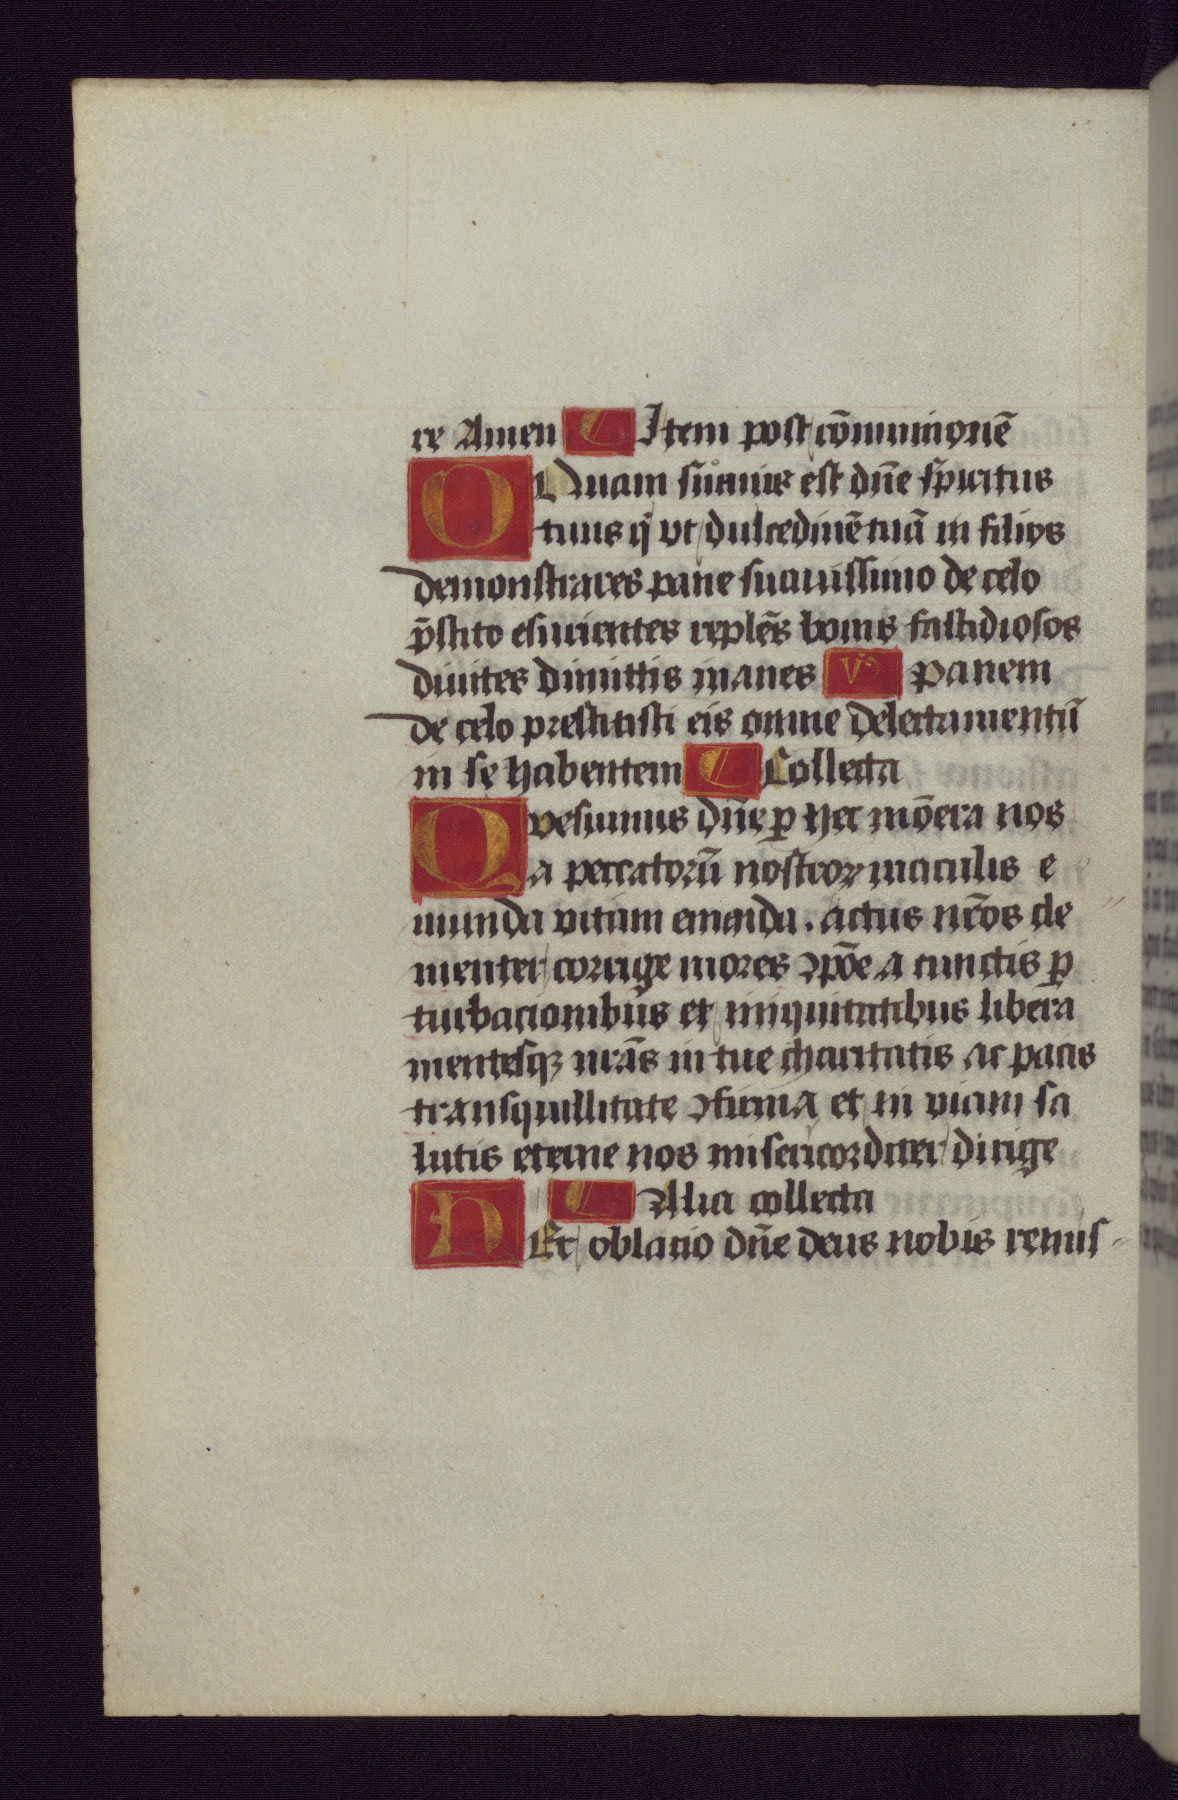 re Amen ¶ Item post cōmunionē
O Quam suauis est dn̄e sp̄iritus
tuus q̄ vt dulcedinē tuā in filios
demonstrares pane suauissimo de celo
p̄stito esurientes replēs bonis fastidiosos
diuites dimittis inanes V̕ panem
de celo prestitisti eis omne delectamentū
in se habentem ¶ Collecta
Qvesumus dn̄e ꝑ hec mōera nos
a peccatorū nostroꝝ maculis e
munda vitam emenda . actus nr̄os cle
menter corrige mores ꝯpōe a cunctis ꝑ
turbacionibus et iniquitatibus libera
mentesqꝫ nr̄as in tue charitatis ac pacis
transquillitate ꝯfirma et in viam sa
lutis eterne nos misericorditer dirige
¶ Alia collecta
HEc oblacio dn̄e deus nobis remis